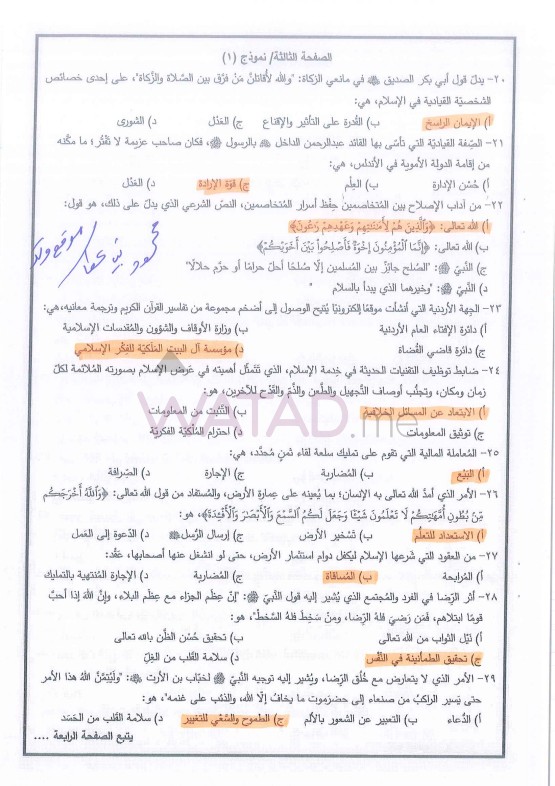 الصفحة الثالثة/ نموذج (١)
٢٠- يدلّ قول أبي بكر الصديق ﷺ في مانعي الزكاة: "والله لأقاتلنّ مَنْ فرّق بين الصّلاة والزّكاة"، على إحدى خصائص
الشخصيّة القيادية في الإسلام، هي:
أ) الإيمان الراسخ ب) القُدرة على التأثير والإقناع ج) العَدْل د) الشورى
٢١- الصِّفة القياديّة التي تأسّى بها القائد عبدالرحمن الداخل بالرسول ﷺ، فكان صاحب عزيمة لا تَفْتُر؛ ما مكّنه
من إقامة الدولة الأموية في الأندلس، هي:
أ) حُسْن الإدارة ب) العِلْم ج) قوّة الإرادة د) العَدْل
٢٢- من آداب الإصلاح بين المُتخاصمين حِفْظ أسرار المُتخاصمين، النصّ الشرعي الذي يدلّ على ذلك، هو قول:
أ) الله تعالى: ﴿وَالَّذِينَ هُمْ لِأَمَانَاتِهِمْ وَعَهْدِهِمْ رَاعُونَ﴾
ب) الله تعالى: ﴿إِنَّمَا الْمُؤْمِنُونَ إِخْوَةٌ فَأَصْلِحُوا بَيْنَ أَخَوَيْكُمْ﴾
ج) النبيّ ﷺ: "الصلح جائزٌ بين المسلمين إلّا صُلحًا أحلّ حرامًا أو حرّم حلالًا"
د) النبيّ ﷺ: "وخيرهما الذي يبدأ بالسلام
٢٣- الجهة الأردنية التي أنشأت موقعًا إلكترونيًا يُتيح الوصول إلى أضخم مجموعة من تفاسير القرآن الكريم وترجمة معانيه، هي:
أ) دائرة الإفتاء العام الأردنية ب) وزارة الأوقاف والشؤون والمُقدسات الإسلامية
ج) دائرة قاضي القُضاة د) مؤسسة آل البيت الملكيّة للفِكْر الإسلامي
٢٤- ضابط توظيف التقنيات الحديثة في خِدمة الإسلام، الذي تتمثّل أهميته في عَرض الإسلام بصورته المُلائمة لكلّ
زمان ومكان، وتجنُّب أوصاف التَّجهيل والطّعن والذّمّ والقَدْح للآخرين، هو:
أ) الابتعاد عن المسائل الخلافية ب) التَّثبُّت من المعلومات
ج) توثيق المعلومات د) احترام المُلْكيّة الفكريّة
WATAD.me
٢٥- المُعاملة المالية التي تقوم على تمليك سلعة لقاء ثمنٍ مُحدّد، هي:
أ) البَيْع ب) المُضاربة ج) الإجارة د) الصِّرافة
٢٦- الأمر الذي أمدّ الله تعالى به الإنسان؛ بما يُعينه على عِمارة الأرض، والمُستفاد من قول الله تعالى: ﴿وَاللَّهُ أَخْرَجَكُم
مِّن بُطُونِ أُمَّهَاتِكُمْ لَا تَعْلَمُونَ شَيْئًا وَجَعَلَ لَكُمُ السَّمْعَ وَالْأَبْصَارَ وَالْأَفْئِدَةَ﴾، هو:
أ) الاستعداد للتعلُّم ب) تسْخير الأرض ج) إرسال الرُّسل د) الدّعوة إلى العَمل
٢٧- من العقود التي شَرعها الإسلام ليكفل دوام استثمار الأرض، حتى لو انشغل عنها أصحابها، عَقْد:
أ) المُرابحة ب) المُساقاة ج) المُضاربة د) الإجارة المُنتهية بالتمليك
٢٨- أثر الرِّضا في الفرد والمُجتمع الذي يُشير إليه قول النّبيّ ﷺ: "إنّ عِظَم الجزاء مع عِظَم البلاء، وإنَّ الله إذا أحبَّ
قومًا ابتلاهم، فمَن رَضِيَ فلهُ الرِّضا، ومنْ سَخِطَ فلهُ السَّخطُ"، هو:
أ) نَيْل الثواب من الله تعالى ب) تحقيق حُسْن الظّن بالله تعالى
ج) تحقيق الطمأنينة في النَّفْس د) سلامة القَلْب من الغِلّ
٢٩- الأمر الذي لا يتعارض مع خُلُق الرِّضا، ويُشير إليه توجيه النَّبيّ ﷺ لخَبّاب بن الأرت ﷺ: "ولَيُتِمَّنَّ اللهُ هذا الأمر
حتى يَسير الراكبُ من صنعاء إلى حضرموت ما يخافُ إلّا الله، والذئب على غنمه"، هو:
أ) الدُّعاء ب) التعبير عن الشعور بالألم ج) الطموح والسَّعْي للتغيير د) سلامة القَلب من الحَسَد
يتبع الصفحة الرابعة ....